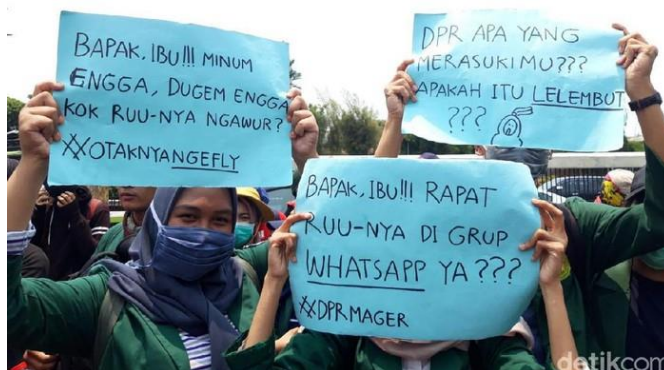 BAPAK, IBU!!! MINUM
ENGGA, DUGEM ENGGA
KOK RUU-NYA NGAWUR?
#OTAKNYANGEFLY
DPR APA YANG
MERASUKIMU???
APAKAH ITU LELEMBUT
???
BAPAK, IBU!!! RAPAT
RUU-NYA DI GRUP
WHATSAPP YA???
#DPRMAGER
detikcom